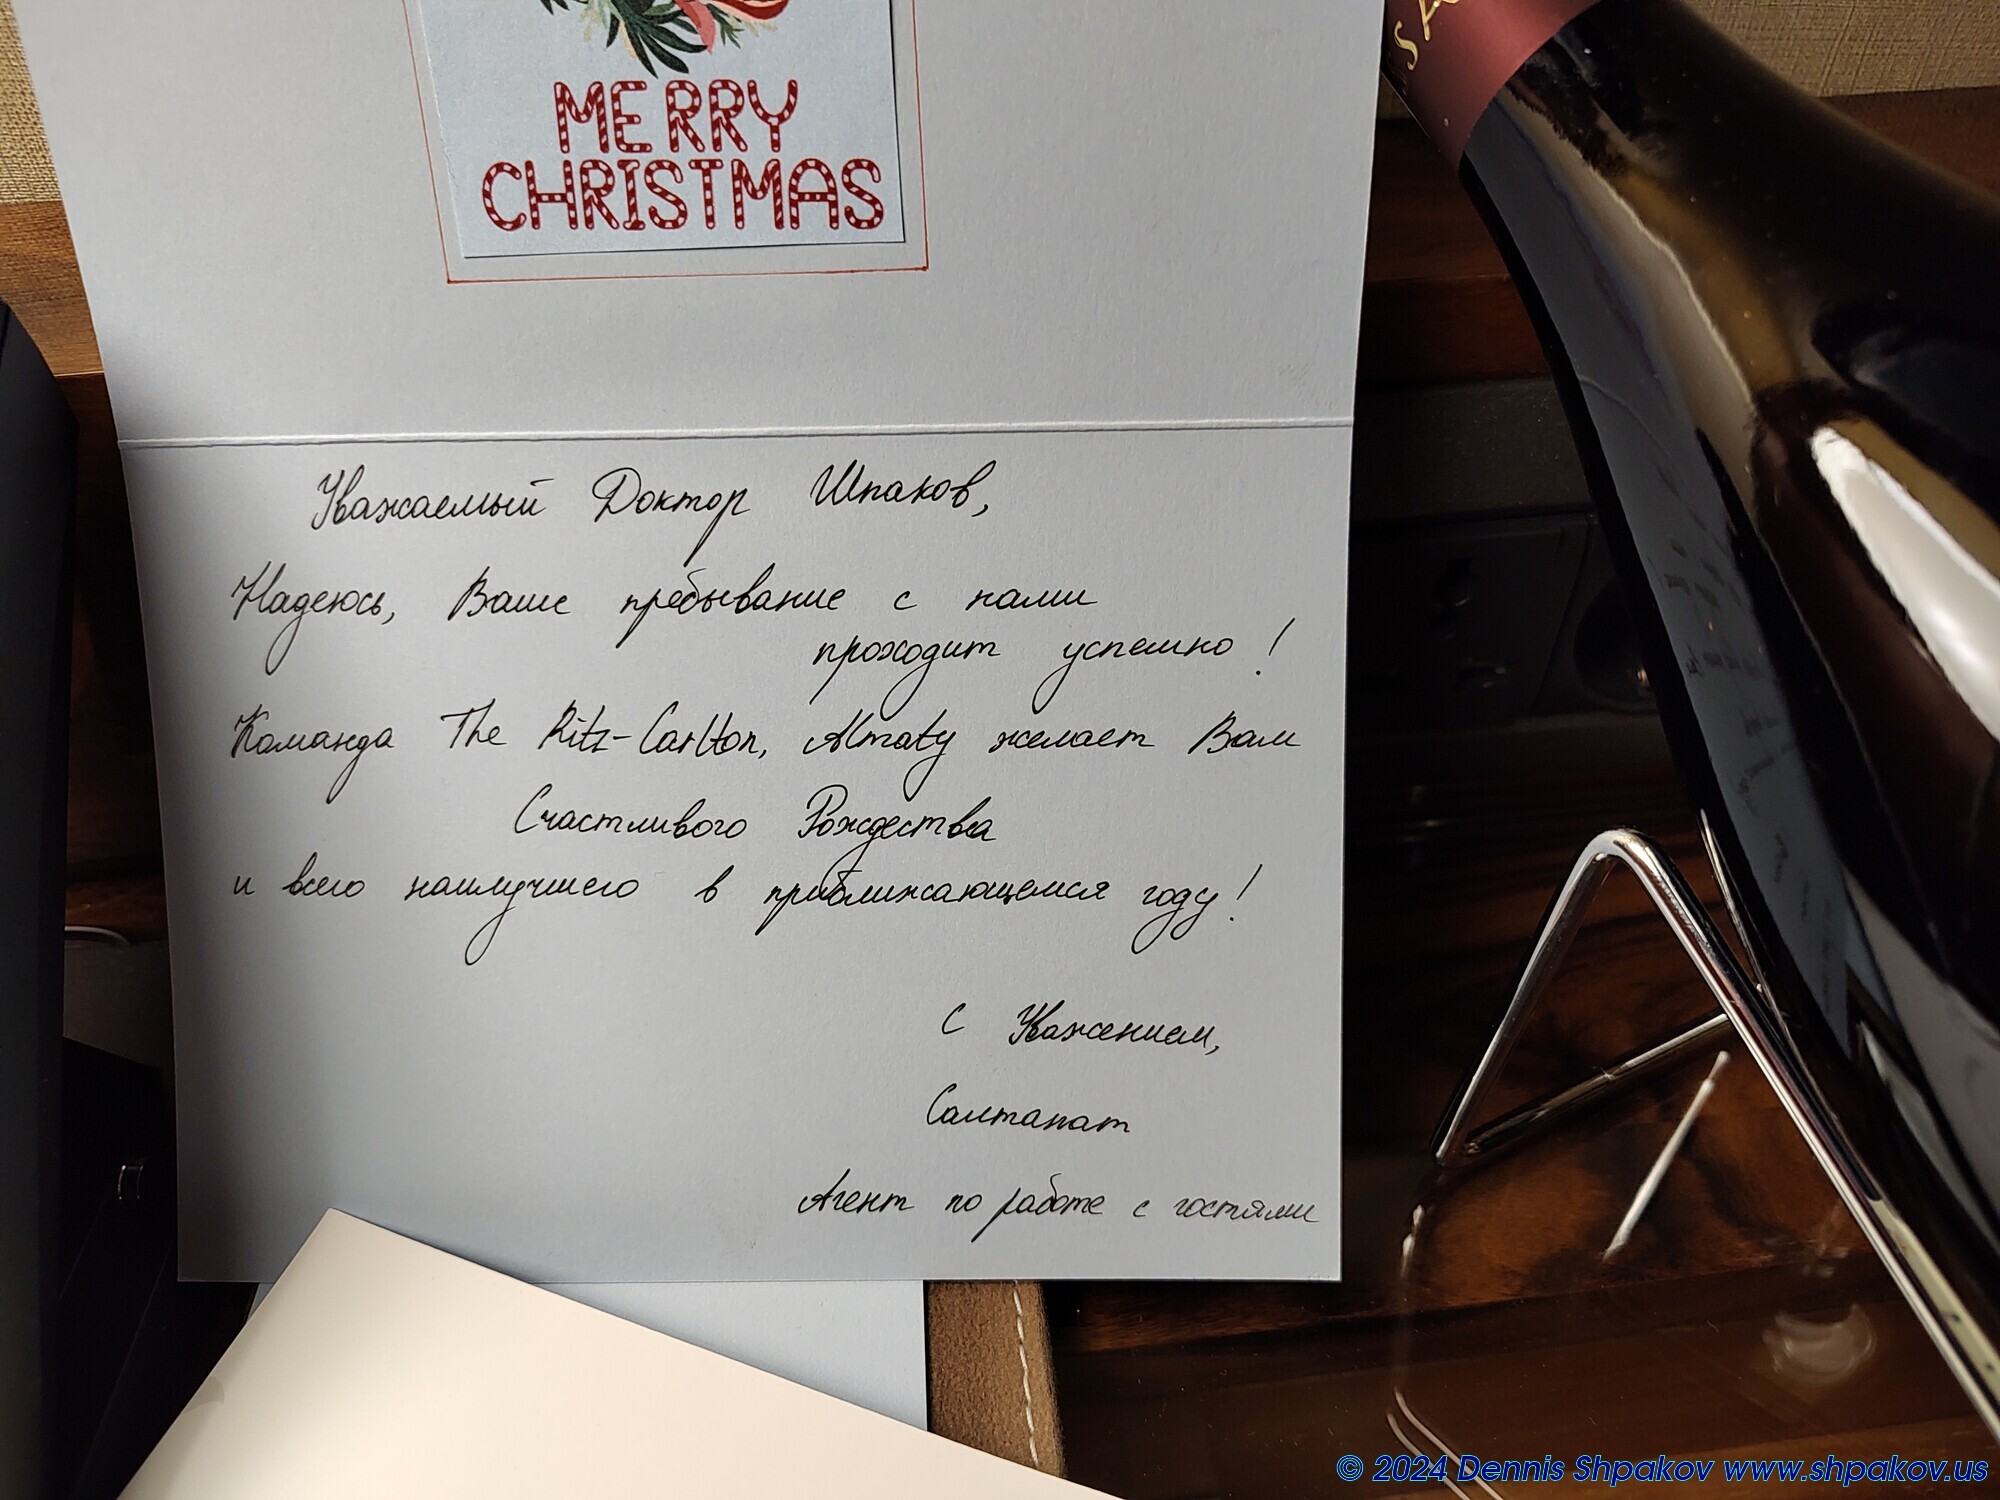 MERRY
CHRISTMAS
Уважаемый Доктор Шпаков,
Надеюсь, Ваше пребывание с нами
проходит успешно!
Команда The Ritz-Carlton, Almaty желает Вам
Счастливого Рождества
и всего наилучшего в приближающемся году!
С Уважением,
Салтанат
Агент по работе с гостями
© 2024 Dennis Shpakov www.shpakov.us